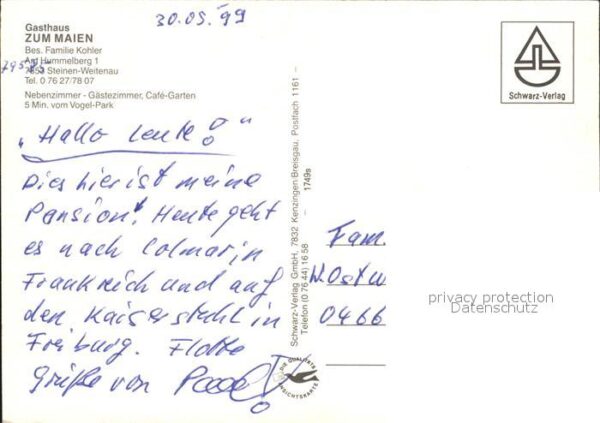 30.05.99
Gasthaus
ZUM MAIEN
Bes. Familie Kohler
Am Hummelberg 1
7853 Steinen-Weitenau
79585
Tel. 0 76 27/78 07
Nebenzimmer - Gästezimmer, Café-Garten
5 Min. vom Vogel-Park
Schwarz-Verlag
„Hallo Leute!"
Dies hier ist meine
Pansion! Heute geht
es nach Colmar in
Frankreich und auf
den Kaiserstuhl in
Freiburg. Flotte
Grüße von
Schwarz-Verlag GmbH, 7832 Kenzingen-Breisgau, Postfach 1161 –
Telefon (0 76 44) 16 58 – 1749s
DIE QUALITÄTS
ANSICHTSKARTE
Fam.
W. Ostw
0466
privacy protection
Datenschutz